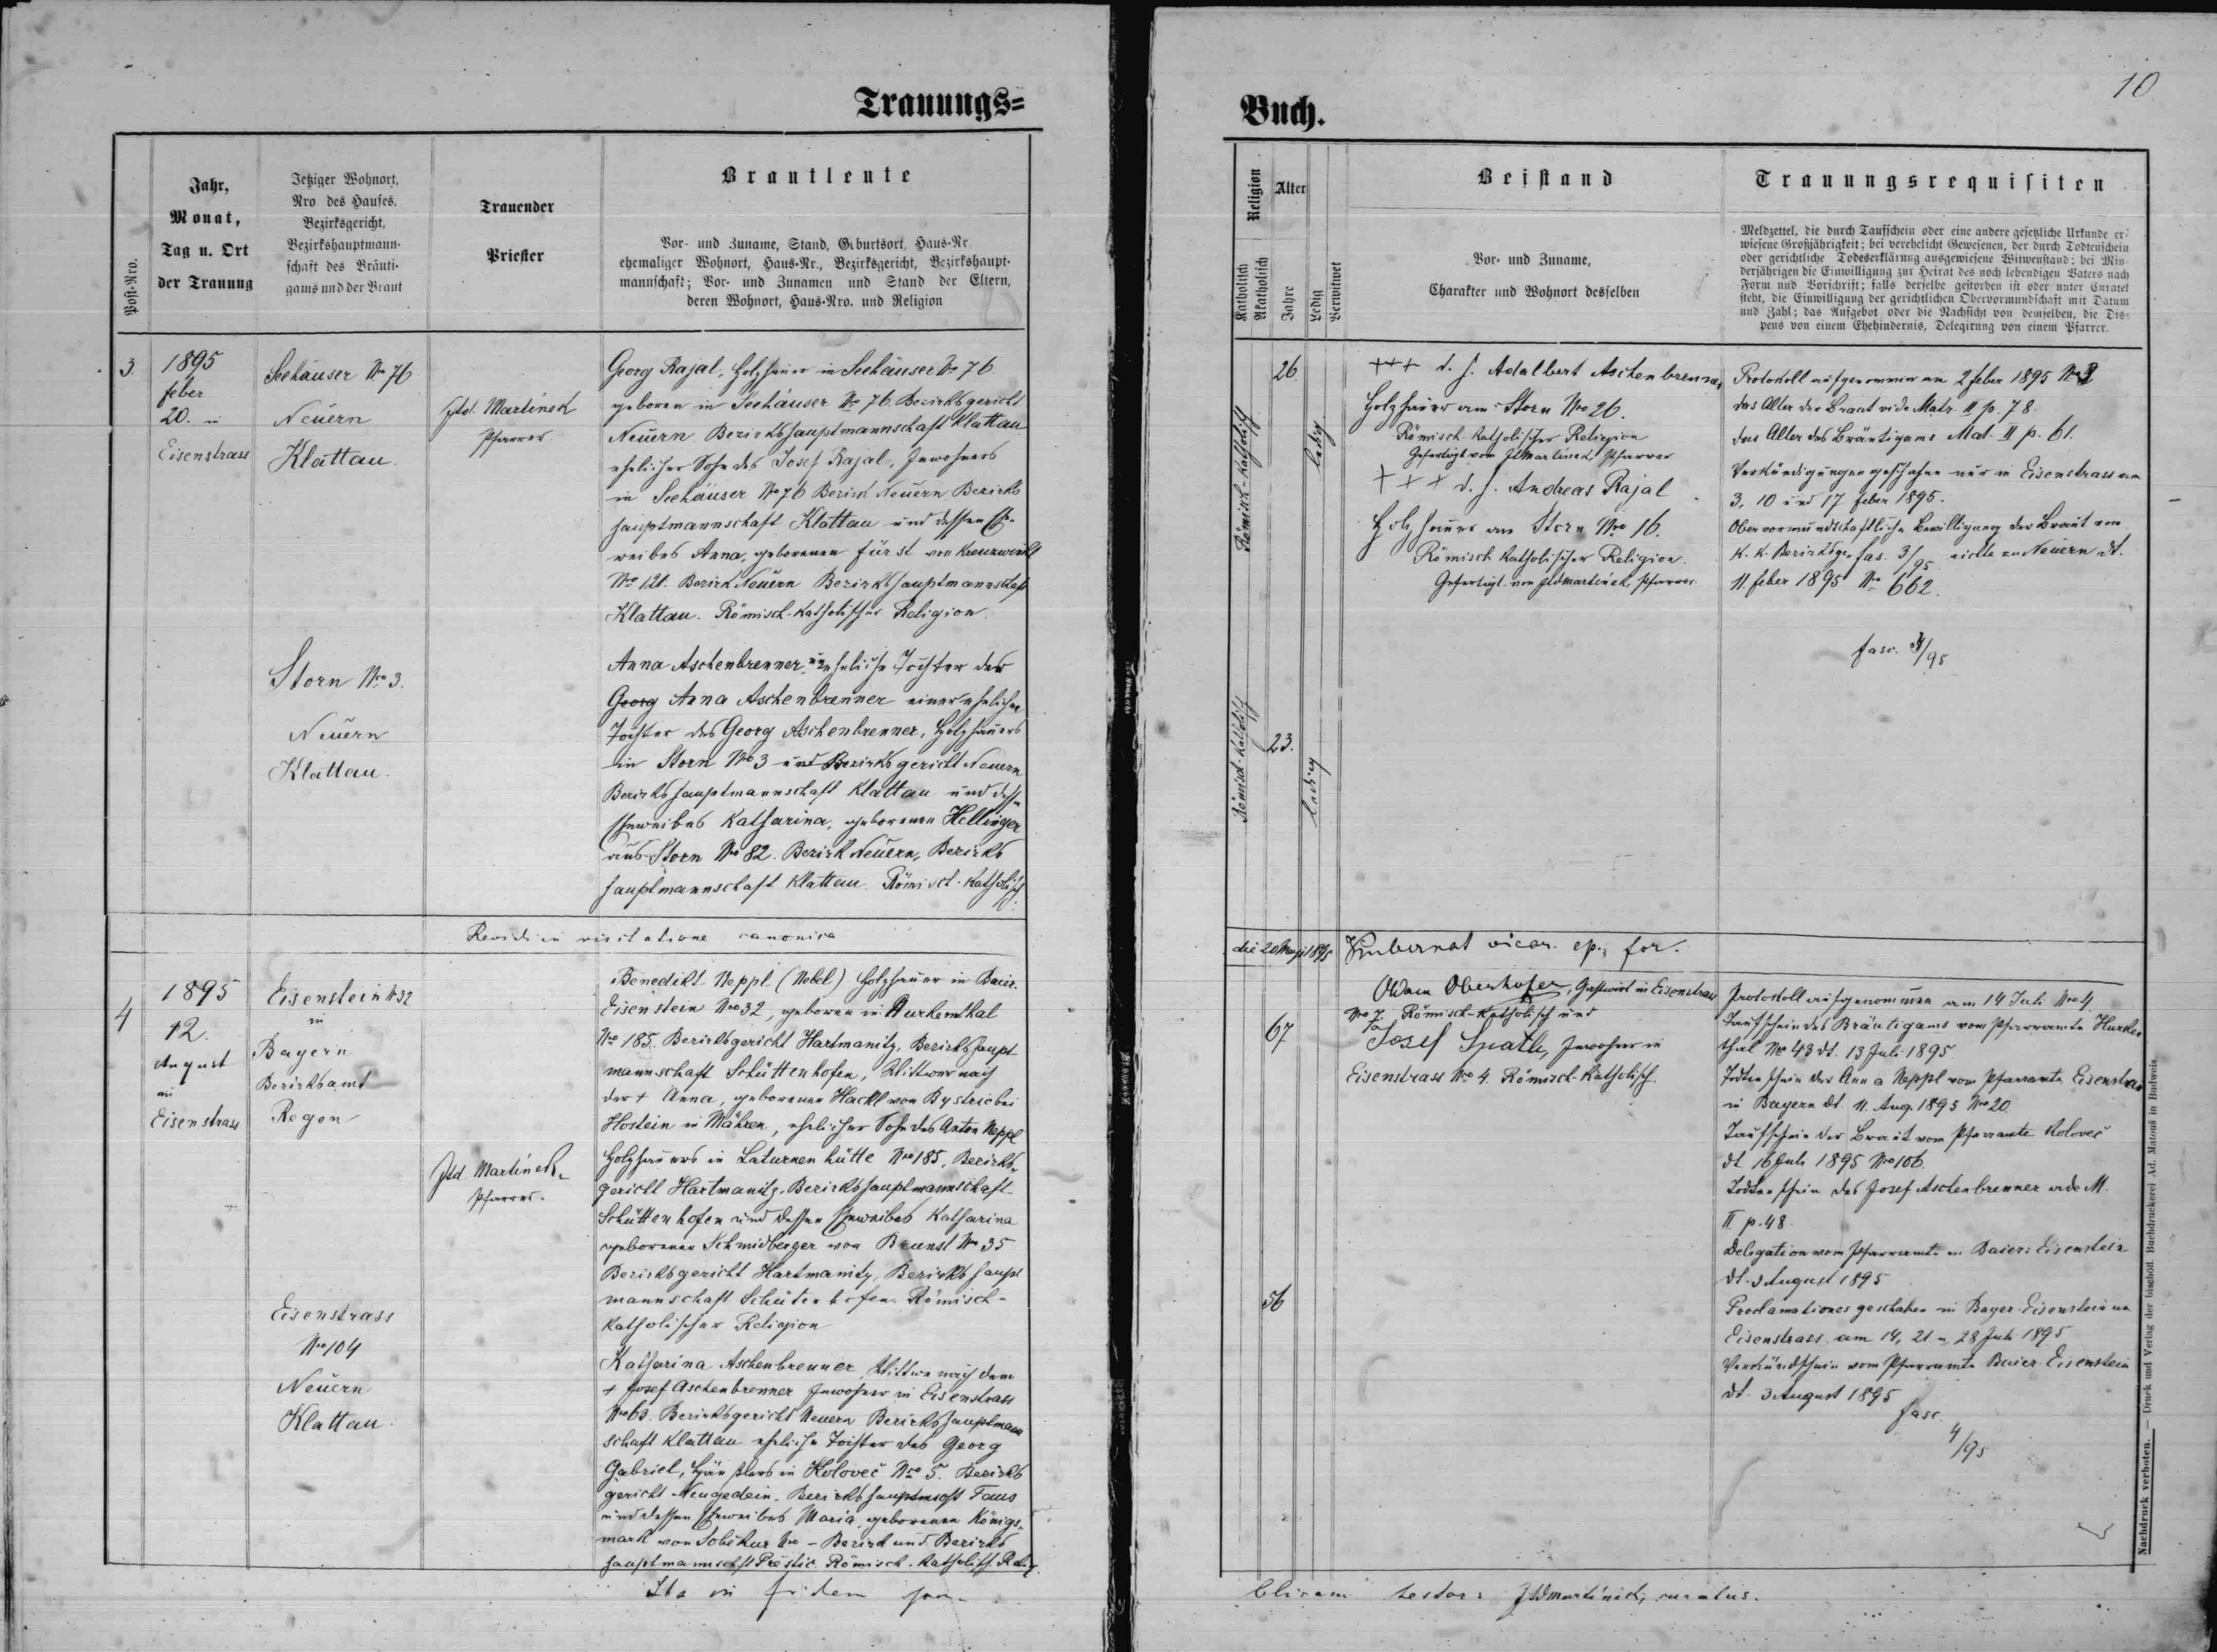 Trauungs=
Jahr,
Monat,
Tag u. Ort
der Trauung
Jetziger Wohnort,
Nro des Hauses,
Bezirksgericht,
Bezirkshauptmann-
schaft des Bräuti-
gams und der Braut
Trauender
Priester
Brautleute
Vor- und Zuname, Stand, Geburtsort, Haus-Nr.
ehemaliger Wohnort, Haus-Nr., Bezirksgericht, Bezirkshaupt-
mannschaft; Vor- und Zunamen und Stand der Eltern,
deren Wohnort, Haus-Nro. und Religion
Post-Nro.
3.
1895
feber
20. in
Eisenstrass
Seehäuser No 76
Neuern
Klattau.
Jld. Martínek
Pfarrer
Georg Rajal, Holzhauer in Seehäuser No 76.
geboren in Seehäuser No 76. Bezirksgericht
Neuern Bezirkshauptmannschaft Klattau
ehelicher Sohn des Josef Rajal, Inwohners
in Seehäuser No 76 Bezirk Neuern Bezirks
hauptmannschaft Klattau und dessen Ehe-
weibes Anna, geborenen Fürst von Kreuzwinkl
No 121. Bezirk Neuern Bezirkshauptmannschaft
Klattau. Römisch-katholischer Religion.
Storn Nro 3.
Neuern
Klattau.
Anna Aschenbrenner, uneheliche Tochter der
Georg Anna Aschenbrenner einer ehelichen
Tochter des Georg Aschenbrenner, Holzhauers
in Storn No 3 und Bezirksgericht Neuern
Bezirkshauptmannschaft Klattau und dessen
Eheweibes Katharina, geborenen Hellinger
aus Storn No 82. Bezirk Neuern, Bezirks
hauptmannschaft Klattau. Römisch-katholisch.
Revidi in visitatione canonica
4
1895
12.
August
in
Eisenstrass
Eisenstein N 32
in
Bayern
Bezirksamt
Regen
Jld. Martínek
Pfarrer.
Benedikt Neppl (Nebel) Holzhauer in Baier.
Eisenstein Nro 32, geboren in Hurkenthal
No 185. Bezirksgericht Hartmanitz, Bezirkshaupt
mannschaft Schüttenhofen, Wittwer nach
der + Anna, geborenen Hackl von Bystric bei
Hostein in Mähren, ehelicher Sohn des Anton Neppl
Holzhauers in Laturnenhütte Nro 185, Bezirks-
gericht Hartmanitz, Bezirkshauptmannschaft
Schüttenhofen und dessen Eheweibes Katharina
geborenen Schmidberger von Brunst No 35
Bezirksgericht Hartmanitz, Bezirkshaupt
mannschaft Schüttenhofen. Römisch-
katholischer Religion
Eisenstrass
Nro 104
Neuern
Klattau.
Katharina Aschenbrenner Wittwe nach dem
+ Josef Aschenbrenner Inwohner in Eisenstrass
Nro 63. Bezirksgericht Neuern Bezirkshauptmann
schaft Klattau eheliche Tochter des Georg
Gabriel, Häuslers in Koloveč Nro 5. Bezirks
gericht Neugedein, Bezirkshauptmschft Taus
und dessen Eheweibes Maria, geborenen Königs-
mark von Soběkur No - Bezirk und Bezirks
hauptmannschft Přestic Römisch-katholisch. Relig.
Ita in fidem
Buch.
10
Religion
Katholisch
Akatholisch
Alter
Jahre
Ledig
Verwitwet
Beistand
Vor- und Zuname,
Charakter und Wohnort desselben
Trauungsrequisiten
Meldzettel, die durch Taufschein oder eine andere gesetzliche Urkunde er-
wiesene Großjährigkeit; bei verehelicht Gewesenen, der durch Todtenschein
oder gerichtliche Todeserklärung ausgewiesene Witwenstand; bei Min-
derjährigen die Einwilligung zur Heirat des noch lebendigen Vaters nach
Form und Vorschrift; falls derselbe gestorben ist oder unter Curatel
steht, die Einwilligung der gerichtlichen Obervormundschaft mit Datum
und Zahl; das Aufgebot oder die Nachsicht von demselben, die Dis-
pens von einem Ehehindernis, Delegirung von einem Pfarrer.
Römisch-katholisch
26.
ledig
+++ d. h. Adalbert Aschenbrenner
Holzhauer am Storn Nro 26.
Römisch katholischer Religion
Gefertigt von Jld Martínek, Pfarrer
+++ d. h. Andreas Rajal
Holzhauer am Storn Nro 16.
Römisch katholischer Religion.
Gefertigt von Jld Martínek, Pfarrer.
Protokoll aufgenommen am 2 feber 1895 No 3
das Alter der Braut vide Matr. II p. 78.
das Alter des Bräutigams Mat. II p. 61.
Verkündigungen geschahen nur in Eisenstrass am
3, 10 und 17 feber 1895.
Obervormundschaftliche Bewilligung der Braut vom
K. K. Bezirksge fas. 3/95 richte zu Neuern dt.
11. feber 1895 No 662.
fasc. 3/95
Römisch-katholisch
23.
ledig
die 20 1895
vicar. ep. for.
Oberhofer, Gastwirt in Eisenstrass
No 7. Römisch-katholisch und
67
Josef Spath, Inwohner in
Eisenstrass No 4. Römisch-katholisch.
56
Protokoll aufgenommen am 14 Juli Nro 4.
Taufschein des Bräutigams vom Pfarramte Hurken
thal No 43 dt. 13 Juli 1895
Todtenschein der Anna Neppl vom Pfarramte Eisenstein
in Bayern dt. 11. Aug. 1895 Nro 20.
Taufschein der Braut vom Pfarramte Koloveč
dt 16 Juli 1895 Nro 106.
Todtenschein des Josef Aschenbrenner vide M.
II p. 48.
Delegation vom Pfarramte in Baier: Eisenstein
dt. 3 August 1895
Proclamationes geschahen in Bayer-Eisenstein
Eisenstrass. am 14, 21 u. 28 Juli 1895
Verkündschein vom Pfarramte Baier-Eisenstein
dt. 3 August 1895
fasc. 4/95
testor: Jld Martínek, curatus.
Nachdruck verboten. — Druck und Verlag der bischöfl. Buchdruckerei Ad. Matouš in Budweis.